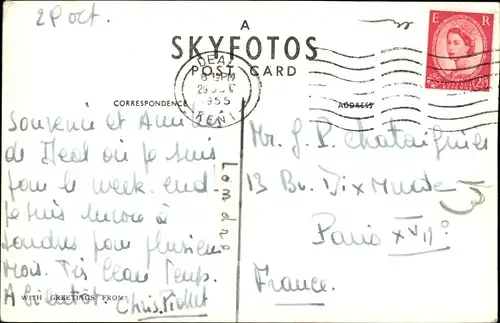 2P oct.
A
SKYFOTOS
POST CARD
DEAL
6-15PM
1955
KENT
E R
CORRESPONDENCE
ADDRESS
Souvenir et Amitiés
de Deal où je suis
pour le week-end.
Je suis encore à
Londres pour plusieurs
mois. Très beau temps.
A bientôt. Chris
WITH GREETINGS FROM:
Londres
Mr. J. P. Chataignier
13 Bv.
Paris XVIIº
France.